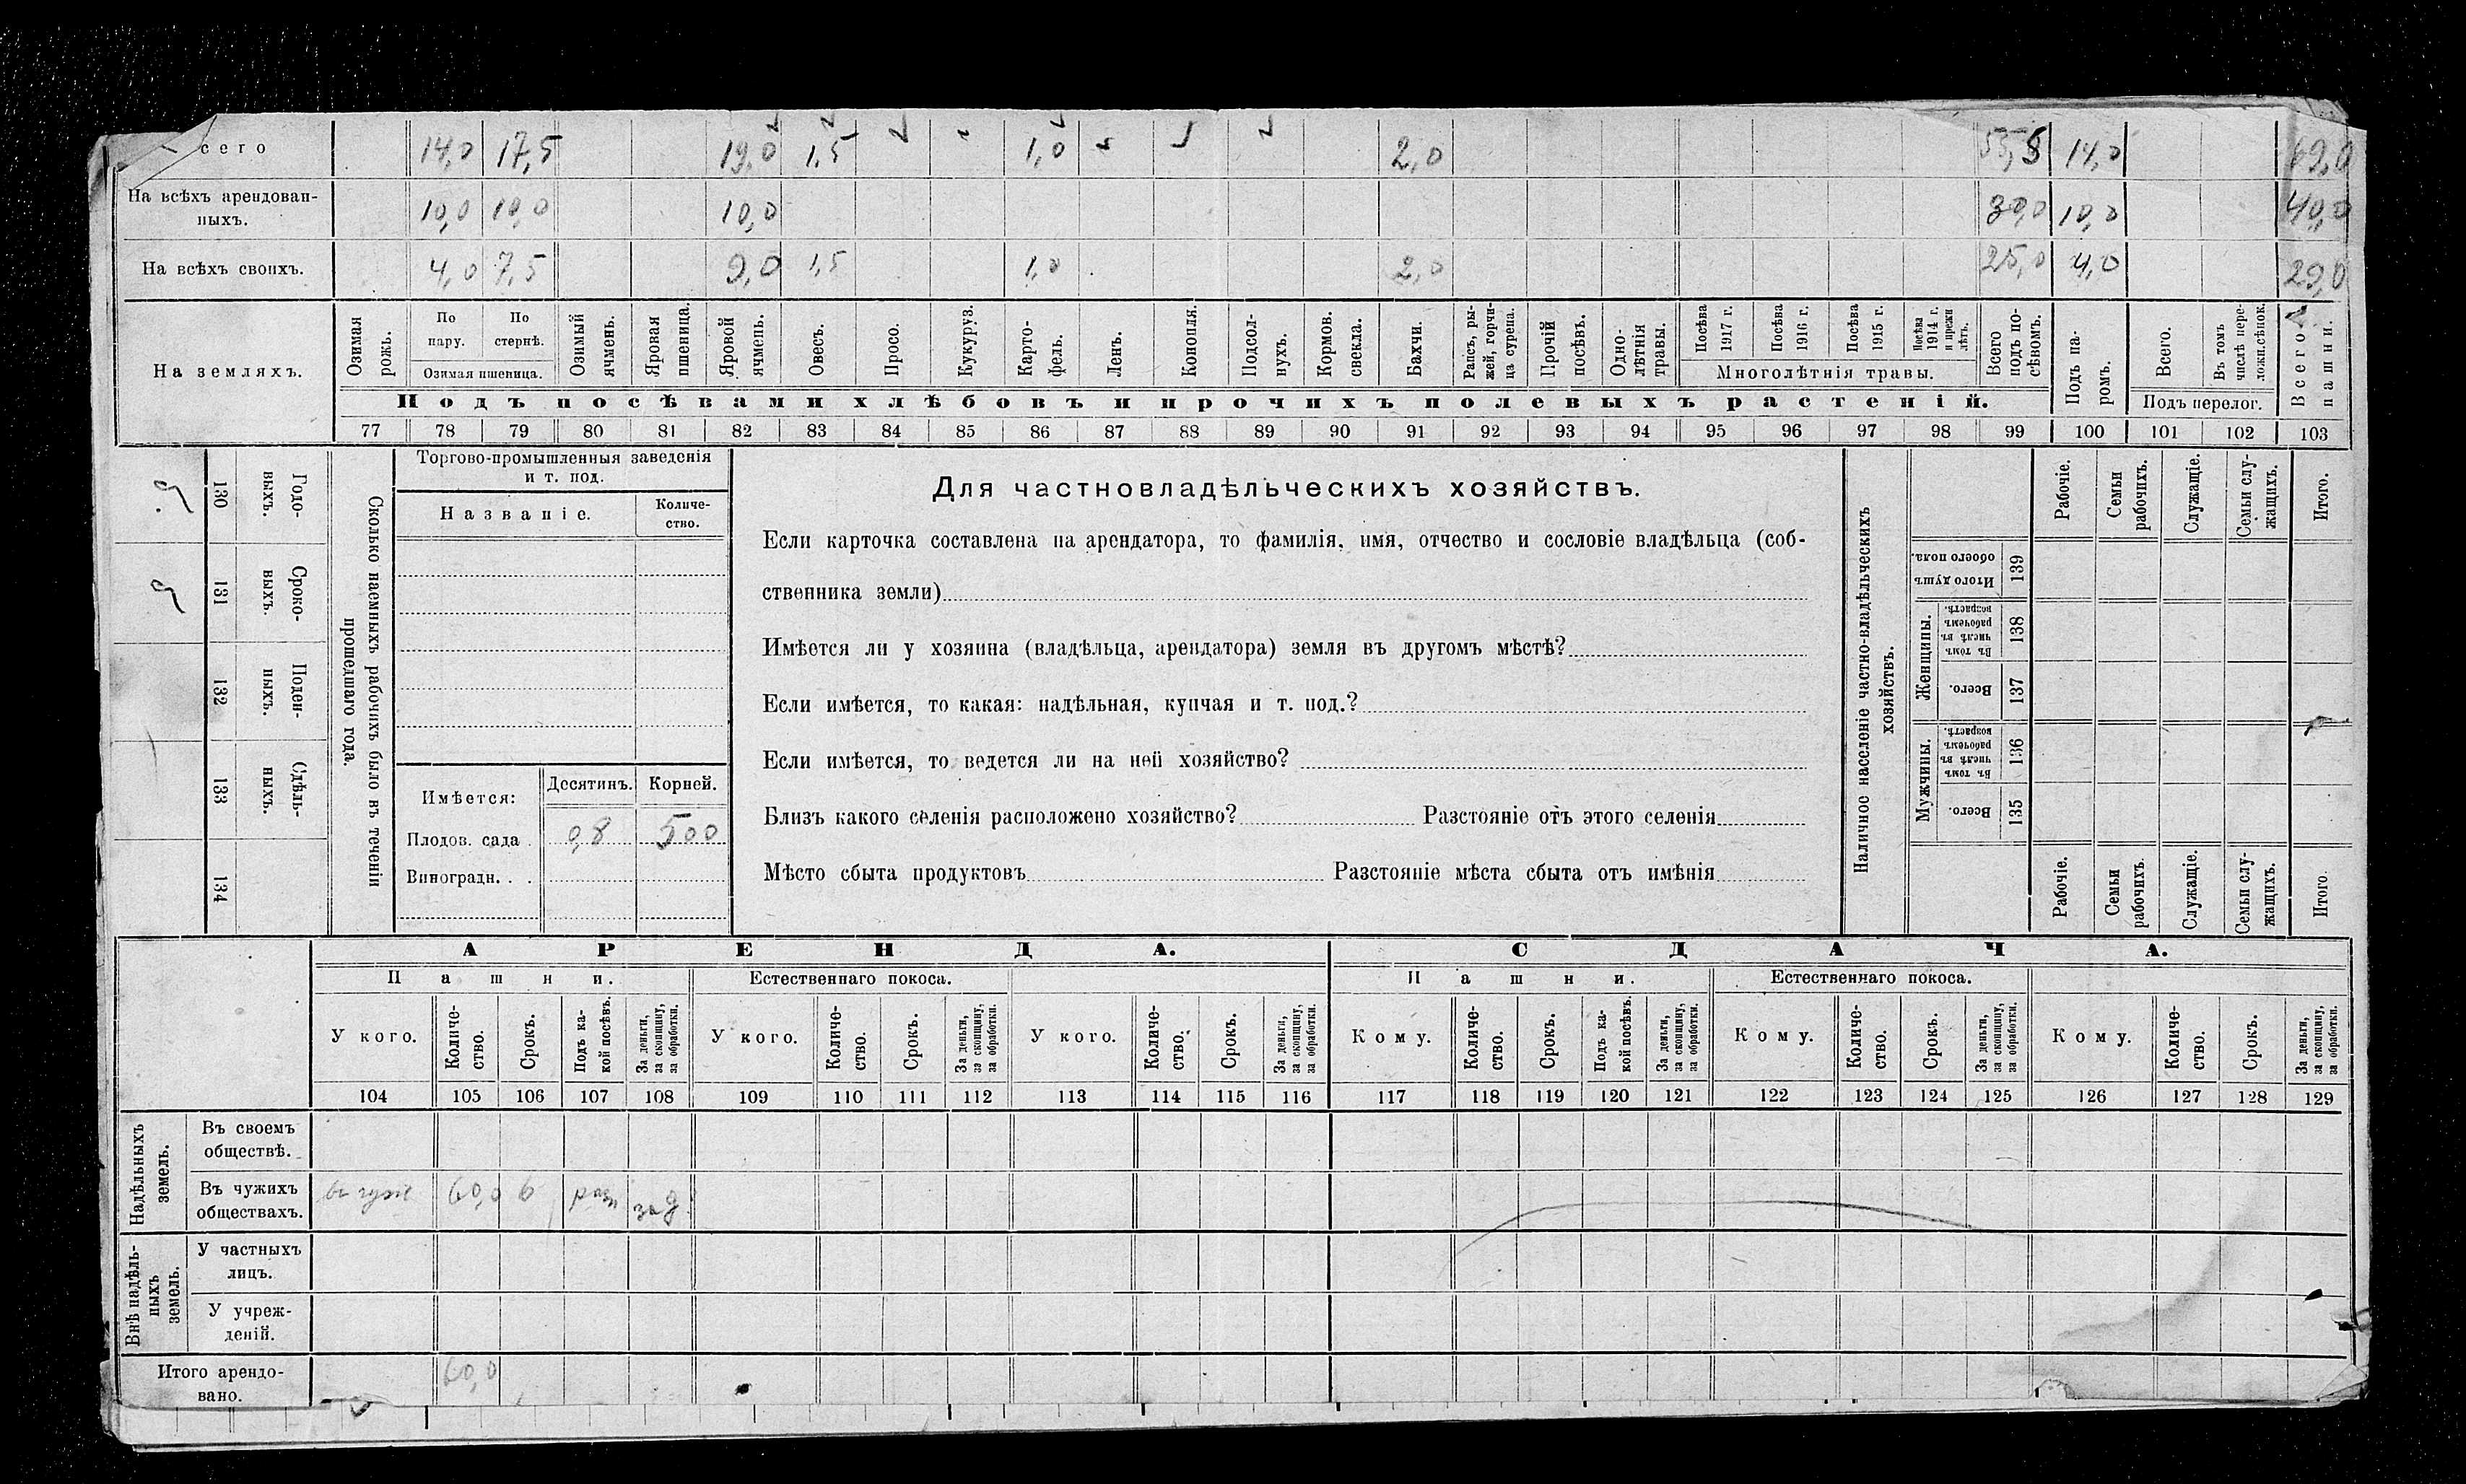 сего 14,0 17,5 19,0 1,5 1,0 2,0 14,0 69,0
На всѣхъ арендован-
ныхъ. 10,0 10,0 10,0 30,0 10,0 40,0
На всѣхъ своихъ. 4,0 7,5 9,0 1,5 1,0 2,0 25,0 4,0 29,0
На земляхъ.
Озимая рожь.
По пару.
По стернѣ.
Озимая пшеница.
Озимый ячмень.
Яровая пшеница.
Яровой ячмень.
Овесъ.
Просо.
Кукуруз.
Карто-фель.
Ленъ.
Конопля.
Подсол-нухъ.
Кормов. свекла.
Бахчи.
Рапсъ, ры-жей, горчи-ца сурепа.
Прочій посѣвъ.
Одно-лѣтнія травы.
Посѣва 1917 г.
Посѣва 1916 г.
Посѣва 1915 г.
Посѣва 1914 г. и прежн лѣтъ.
Многолѣтнія травы.
Всего подъ по-сѣвомъ.
Подъ па-ромъ.
Всего.
Въ томъ числѣ пере-ложн.сѣнок.
Подъ перелог.
Всего пашни.
Подъ посѣвами хлѣбовъ и прочихъ полевыхъ растеній.
77 78 79 80 81 82 83 84 85 86 87 88 89 90 91 92 93 94 95 96 97 98 99 100 101 102 103
130 Годо-выхъ.
131 Сроко-выхъ.
132 Поден-ныхъ.
133 Сдѣль-ныхъ.
134
Сколько наемныхъ рабочихъ было въ теченіи
прошедшаго года.
Торгово-промышленныя заведенія
и т. под.
Названіе. Количе-ство.
Имѣется: Десятинъ. Корней.
Плодов. сада . 0,8 500
Виноградн. . .
Для частновладѣльческихъ хозяйствъ.
Если карточка составлена на арендатора, то фамилія, имя, отчество и сословіе владѣльца (соб-
ственника земли)
Имѣется ли у хозяина (владѣльца, арендатора) земля въ другомъ мѣстѣ?
Если имѣется, то какая: надѣльная, купчая и т. под.?
Если имѣется, то ведется ли на ней хозяйство?
Близъ какого селенія расположено хозяйство? Разстояніе отъ этого селенія
Мѣсто сбыта продуктовъ Разстояніе мѣста сбыта отъ имѣнія
Наличное населеніе частно-владѣльческихъ
хозяйствъ.
Рабочіе.
Семьи рабочихъ.
Служащіе.
Семьи слу-жащихъ.
Итого.
Итого душъ обоего пола. 139
Женщины.
Въ томъ числѣ въ рабочемъ возрастѣ. 138
Всего. 137
Мужчины.
Въ томъ числѣ въ рабочемъ возрастѣ. 136
Всего. 135
Рабочіе.
Семьи рабочихъ.
Служащіе.
Семьи слу-жащихъ.
Итого.
АРЕНДА. СДАЧА.
Пашни. Естественнаго покоса. Пашни. Естественнаго покоса.
У кого.
Количе-ство.
Срокъ.
Подъ ка-кой посѣвъ.
За деньги, за скопщину, за обработки.
У кого.
Количе-ство.
Срокъ.
За деньги, за скопщину, за обработки.
У кого.
Количе-ство.
Срокъ.
За деньги, за скопщину, за обработки.
Кому.
Количе-ство.
Срокъ.
Подъ ка-кой посѣвъ.
За деньги, за скопщину, за обработки.
Кому.
Количе-ство.
Срокъ.
За деньги, за скопщину, за обработки.
Кому.
Количе-ство.
Срокъ.
За деньги, за скопщину, за обработки.
104 105 106 107 108 109 110 111 112 113 114 115 116 117 118 119 120 121 122 123 124 125 126 127 128 129
Надѣльныхъ земель.
Въ своемъ
обществѣ.
Въ чужихъ
обществахъ. 60,0 6
Внѣ надѣль-ныхъ земель.
У частныхъ
лицъ.
У учреж-
деній.
Итого арендо-
вано. 60,0